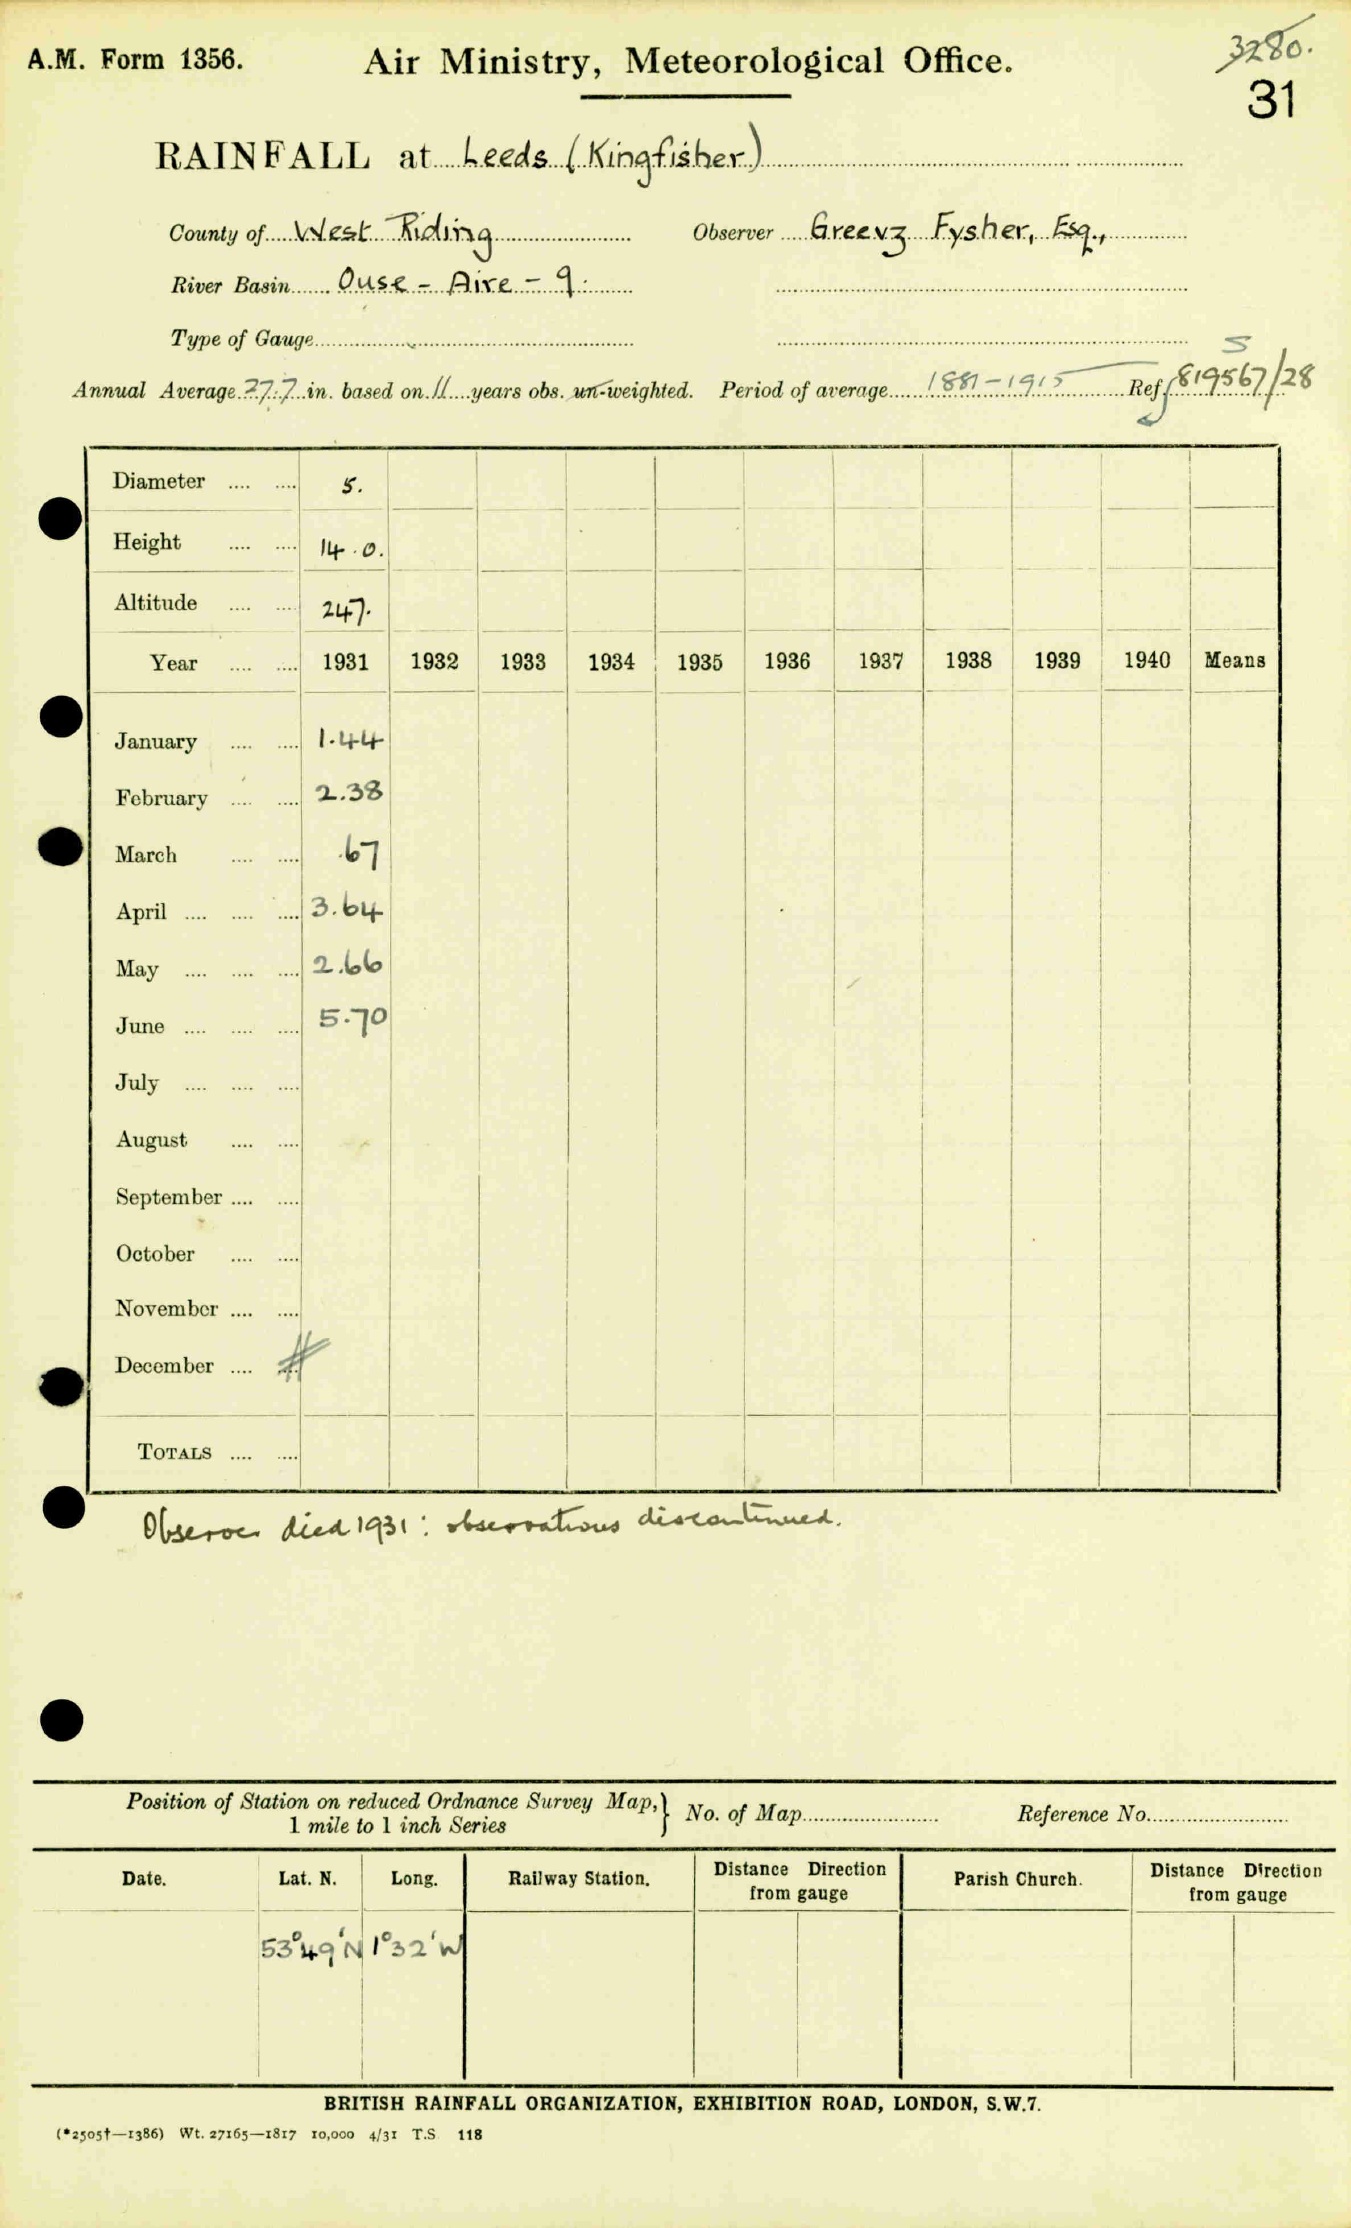 A.M. Form 1356. Air Ministry, Meteorological Office. 3280.
31
RAINFALL at Leeds (Kingfisher)
County of West Riding Observer Greevz Fysher, Esq.,
River Basin Ouse - Aire - 9.
Type of Gauge
S
Annual Average 27.7 in. based on 11 years obs. un-weighted. Period of average 1881-1915 Ref. 819567/28
Diameter .... .... 5.
Height .... .... 14.0.
Altitude .... .... 247.
Year .... .... 1931 1932 1933 1934 1935 1936 1937 1938 1939 1940 Means
January .... .... 1.44
February .... .... 2.38
March .... .... .67
April .... .... .... 3.64
May .... .... .... 2.66
June .... .... .... 5.70
July .... .... ....
August .... ....
September .... ....
October .... ....
November .... ....
December .... ....
TOTALS .... ....
Observer died 1931: observations discontinued.
Position of Station on reduced Ordnance Survey Map,} No. of Map Reference No.
1 mile to 1 inch Series
Date. Lat. N. Long. Railway Station. Distance Direction from gauge Parish Church. Distance Direction from gauge
53°49'N 1°32'W
BRITISH RAINFALL ORGANIZATION, EXHIBITION ROAD, LONDON, S.W.7.
(*2505†—1386) Wt. 27165—1817 10,000 4/31 T.S 118